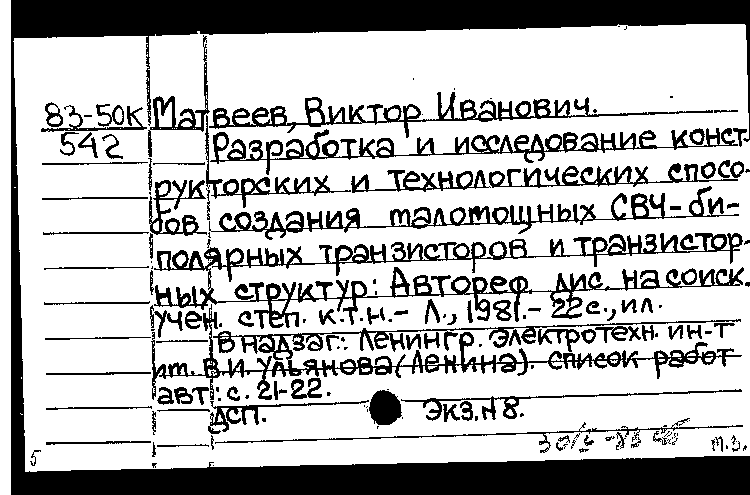 83-50К Матвеев, Виктор Иванович.
542 Разработка и исследование конст-
рукторских и технологических спосо-
бов создания маломощных СВЧ-би-
полярных транзисторов и транзистор-
ных структур: Автореф. дис. на соиск.
учен. степ. к.т.н.- Л., 1981.- 22с., ил.
В надзаг.: Ленингр. электротехн. ин-т
им. В.И. Ульянова (Ленина). Список работ
авт.: с. 21-22.
ДСП. Экз.№8.
5 т.з.